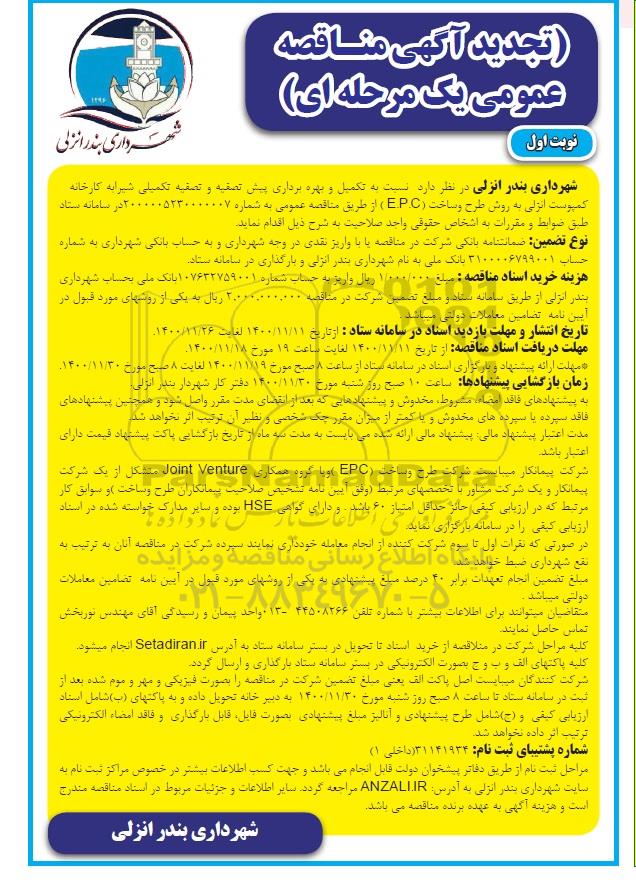 (تجدید آگهی مناقصه
عمومی یک مرحله ای)
نوبت اول
۱۲۹۶
شهرداری بندرانزلی
شهرداری بندر انزلی در نظر دارد نسبت به تکمیل و بهره برداری پیش تصفیه و تصفیه تکمیلی شیرابه کارخانه
کمپوست انزلی به روش طرح وساخت (E.P.C ) از طریق مناقصه عمومی به شماره ۲۰۰۰۰۰۵۲۳۰۰۰۰۰۰۷در سامانه ستاد
طبق ضوابط و مقررات به اشخاص حقوقی واجد صلاحیت به شرح ذیل اقدام نماید.
نوع تضمین: ضمانتنامه بانکی شرکت در مناقصه یا با واریز نقدی در وجه شهرداری و به حساب بانکی شهرداری به شماره
حساب ۳۱۰۰۰۰۶۷۹۹۰۰۱ بانک ملی به نام شهرداری بندر انزلی و بارگذاری در سامانه ستاد.
هزینه خرید اسناد مناقصه : مبلغ ۱/۰۰۰/۰۰۰ ریال واریز به حساب شماره ۰۱۰۷۶۳۲۷۵۹۰۰۱بانک ملی بحساب شهرداری
بندر انزلی از طریق سامانه ستاد و مبلغ تضمین شرکت در مناقصه ۲.۰۰۰.۰۰۰.۰۰۰ ریال به یکی از روشهای مورد قبول در
آیین نامه تضامین معاملات دولتی میباشد
تاریخ انتشار و مهلت بازدید اسناد در سامانه ستاد : ازتاریخ ۱۴۰۰/۱۱/۱۱ لغایت ۱۴۰۰/۱۱/۲۶.
مهلت دریافت اسناد مناقصه: از تاریخ ۱۴۰۰/۱۱/۱۱ لغایت ساعت ۱۹ مورخ ۱۴۰۰/۱۱/۱۸.
*مهلت ارائه پیشنهاد و بارگزاری اسناد در سامانه ستاد از ساعت ۸ صبح مورخ ۱۴۰۰/۱۱/۱۹ لغایت ۸ صبح مورخ ۱۴۰۰/۱۱/۳۰.
زمان بازگشایی پیشنهادها: ساعت ۱۰ صبح روز شنبه مورخ ۱۴۰۰/۱۱/۳۰ دفتر کار شهردار بندر انزلی.
به پیشنهادهای فاقد امضاء، مشروط، مخدوش و پیشنهادهایی که بعد از انقضای مدت مقرر واصل شود و همچنین پیشنهادهای
فاقد سپرده یا سپرده های مخدوش و یا کمتر از میزان مقرر چک شخصی و نظیر آن ترتیب اثر نخواهد شد
مدت اعتبار پیشنهاد مالی: پیشنهاد مالی ارائه شده می بایست به مدت سه ماه از تاریخ بازگشایی پاکت پیشنهاد قیمت دارای
اعتبار باشد.
شرکت پیمانکار میبایست شرکت طرح وساخت (EPC )ویا گروه همکاری Joint Venture متشکل از یک شرکت
پیمانکار و یک شرکت مشاور با تخصصهای مرتبط (وفق آیین نامه تشخیص صلاحیت پیمانکاران طرح وساخت )و سوابق کار
مرتبط که در ارزیابی کیفی حائز حداقل امتیاز ۶۰ باشد . و دارای گواهی HSE بوده و سایر مدارک خواسته شده در اسناد
ارزیابی کیفی را در سامانه بارگزاری نماید.
در صورتی که نفرات اول تا سوم شرکت کننده از انجام معامله خودداری نمایند سپرده شرکت در مناقصه آنان به ترتیب به
نفع شهرداری ضبط خواهد شد.
مبلغ تضمین انجام تعهدات برابر ۴۰ درصد مبلغ پیشنهادی به یکی از روشهای مورد قبول در آیین نامه تضامین معاملات
دولتی میباشد .
متقاضیان میتوانند برای اطلاعات بیشتر با شماره تلفن ۴۴۵۰۸۲۶۶ -۰۱۳واحد پیمان و رسیدگی آقای مهندس نوربخش
تماس حاصل نمایند.
کلیه مراحل شرکت در مناقصه از خرید اسناد تا تحویل در بستر سامانه ستاد به آدرس Setadiran.ir انجام میشود.
کلیه پاکتهای الف و ب و ج بصورت الکترونیکی در بستر سامانه ستاد بارگذاری و ارسال گردد.
شرکت کنندگان میبایست اصل پاکت الف یعنی مبلغ تضمین شرکت در مناقصه را بصورت فیزیکی و مهر و موم شده بعد از
ثبت در سامانه ستاد تا ساعت ۸ صبح روز شنبه مورخ ۱۴۰۰/۱۱/۳۰ به دبیر خانه تحویل داده و به پاکتهای (ب)شامل اسناد
ارزیابی کیفی و (ج)شامل طرح پیشنهادی و آنالیز مبلغ پیشنهادی بصورت فایل، قابل بارگذاری و فاقد امضاء الکترونیکی
ترتیب اثر داده نخواهد شد.
شماره پشتیبای ثبت نام: ۳۱۱۴۱۹۳۴(داخلی ۱)
مراحل ثبت نام از طریق دفاتر پیشخوان دولت قابل انجام می باشد و جهت کسب اطلاعات بیشتر در خصوص مراکز ثبت نام به
سایت شهرداری بندر انزلی به آدرس: ANZALI.IR مراجعه گردد. سایر اطلاعات و جزئیات مربوط در اسناد مناقصه مندرج
است و هزینه آگهی به عهده برنده مناقصه می باشد.
شهرداری بندر انزلی
پایگاه اطلاع رسانی مناقصه و مزایده
۰۲۱-۸۸۳۴۹۶۷۰-۵